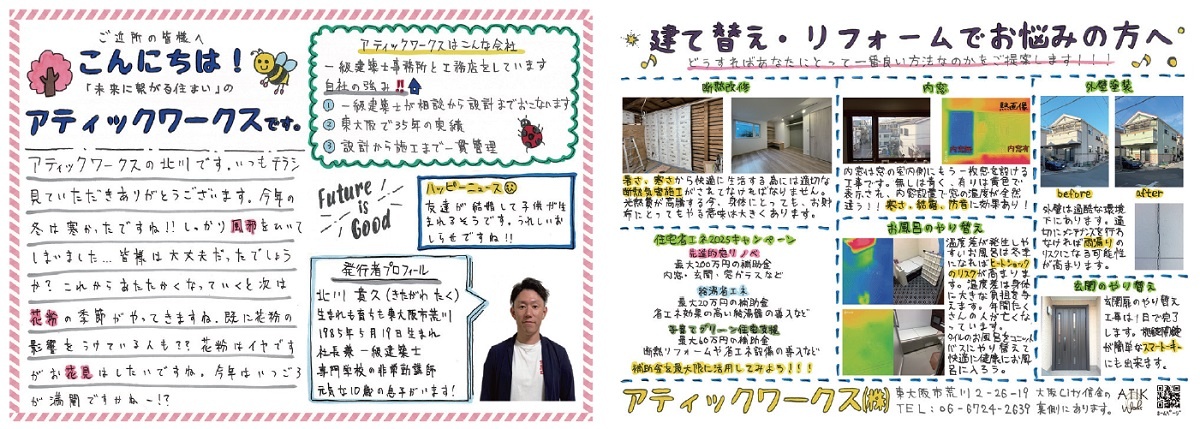 ご近所の皆様へ
こんにちは！
「未来に繋がる住まい」の
アティックワークスです。
アティックワークスの北川です。いつもチラシ
見ていただきありがとうございます。今年の
冬は寒かったですね!!しっかり風邪をひいて
しまいました…皆様は大丈夫だったでしょう
か？これからあたたかくなっていくと次は
花粉の季節がやってきますね。既に花粉の
影響をうけている人も??花粉はイヤです
がお花見はしたいですね。今年はいつごろ
が満開ですかね〜!?
アティックワークスはこんな会社
一級建築士事務所と工務店をしています
自社の強み!!
① 一級建築士が相談から設計までおこないます
② 東大阪で35年の実績
③ 設計から施工まで一貫管理
Future is Good
ハッピーニュース
友達が結婚して子供が生
まれるそうです。うれしいお
しらせですね!!
発行者プロフィール
北川 貴久(きたがわ たく)
生まれも育ちも東大阪市荒川
1985年5月19日生まれ
社長兼一級建築士
専門学校の非常勤講師
元気な10歳の息子がいます!
建て替え・リフォームでお悩みの方へ
どうすればあなたにとって一番良い方法なのかをご提案します!!!
断熱改修
暑さ、寒さから快適に生活する為には適切な
断熱気密施工がされてなければなりません。
光熱費が高騰する今、身体にとっても、お財
布にとってもやる意味は大きくあります。
住宅省エネ2025キャンペーン
先進的窓リノベ
最大200万円の補助金
内窓・玄関・窓ガラスなど
給湯省エネ
最大20万円の補助金
省エネ効果の高い給湯器の導入など
子育てグリーン住宅支援
最大60万円の補助金
断熱リフォームや省エネ設備の導入など
補助金を最大限に活用してみよう!!!
内窓
熱画像
内窓無
内窓有
内窓は窓の室内側にもう一枚窓を設ける
工事です。無しは青く、有りは黄色で
表示され、内窓設置で窓の温度が全然
違う!!寒さ、結露、防音に効果あり!
お風呂のやり替え
温度差が発生しや
すいお風呂は冬季
になればヒートショック
のリスクが高まりま
す。温度差は身体
に大きな負担を与
えます。年間たく
さんの人が亡くな
っています。
タイルのお風呂をユニット
バスにやり替えて
快適に健康にお風
呂に入ろう。
外壁塗装
before
after
外壁は過酷な環境
下にあります。適
切にメンテナンスを行わ
なければ雨漏りの
リスクになる可能性
が高まります。
玄関のやり替え
玄関扉のやり替え
工事は1日で完了
します。施錠開錠
が簡単なスマートキー
にも出来ます。
アティックワークス(株)
東大阪市荒川2-26-19 大阪シティ信金の
TEL：06-6724-2639 裏側にあります。
ATIK Works
ホームページ